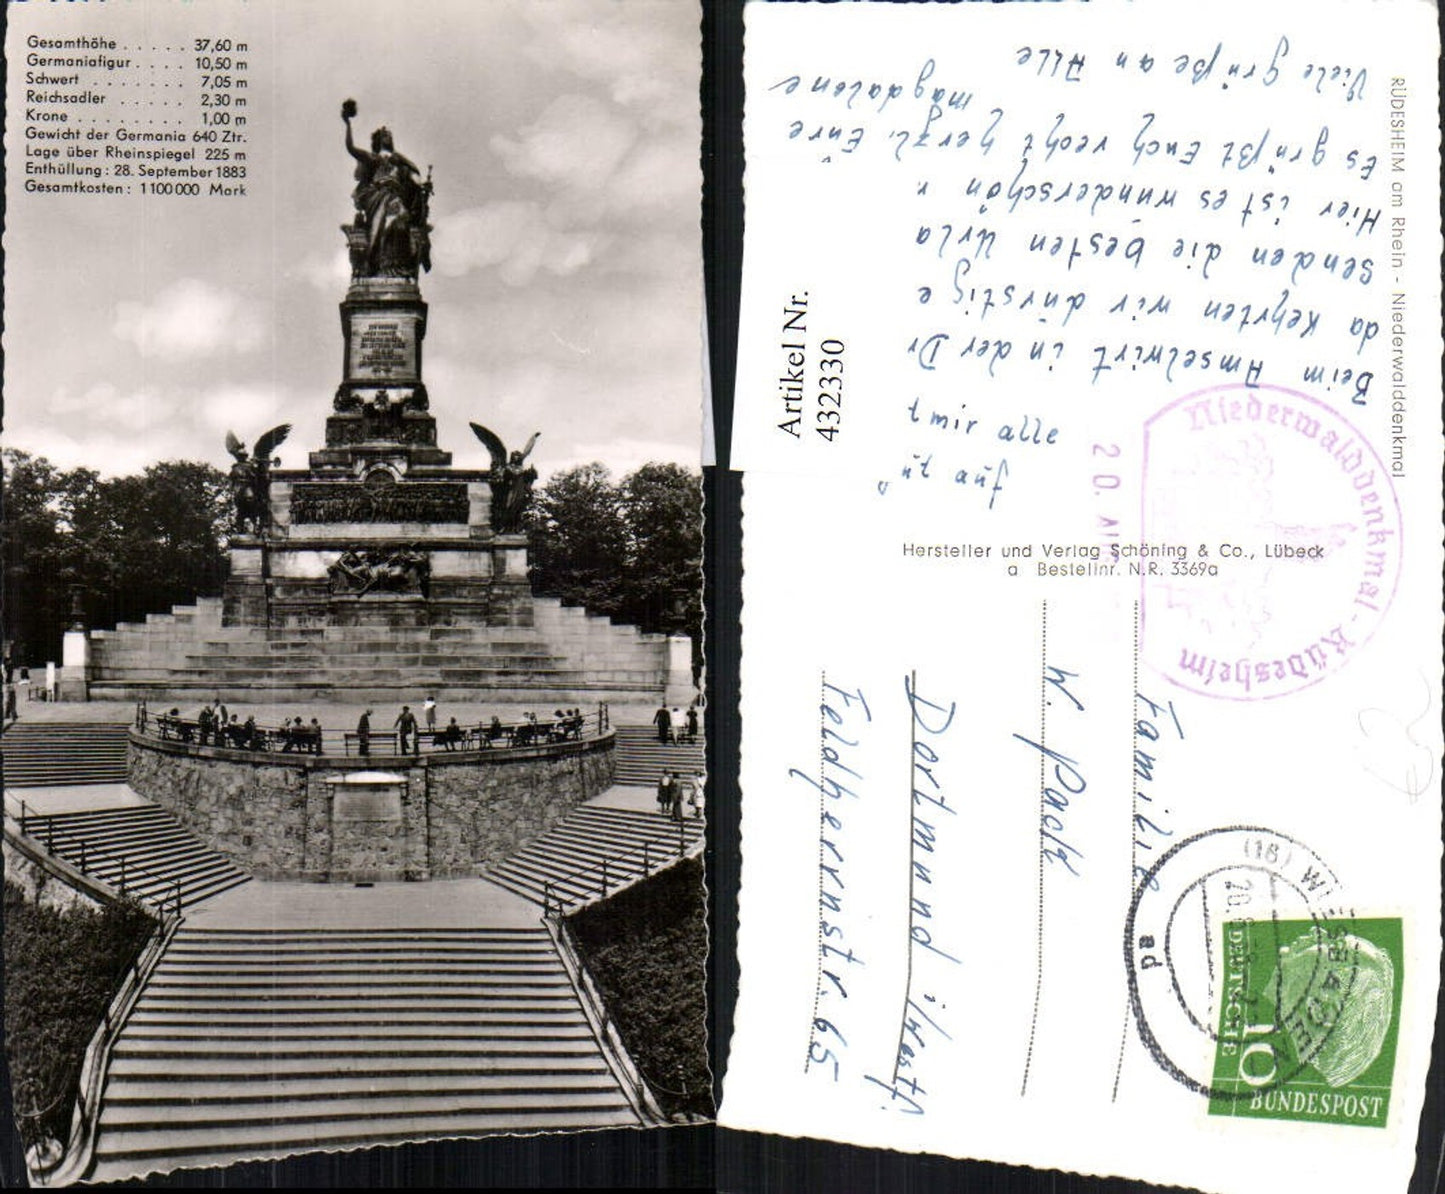 Gesamthöhe . . . . . 37,60 m
Germaniafigur . . . . 10,50 m
Schwert . . . . . . . 7,05 m
Reichsadler . . . . . 2,30 m
Krone . . . . . . . . 1,00 m
Gewicht der Germania 640 Ztr.
Lage über Rheinspiegel 225 m
Enthüllung : 28. September 1883
Gesamtkosten : 1 100 000 Mark
RÜDESHEIM am Rhein - Niederwalddenkmal
Artikel Nr.
432330
mir alle
Beim Amselwirt in der Dr
da kehrten wir durstige
senden die besten Urla
Hier ist es wunderschön
Es grüßt Euch recht herzl. Eure
Magdalene
Viele Grüße an Alle
Niederwalddenkmal - Rüdesheim
20. AUG
Hersteller und Verlag Schöning & Co., Lübeck
a Bestellnr. N.R. 3369a
Familie
W. Pack
Dortmund i/Westf.
Feldherrnstr. 65
(16) WIESBADEN
ad
DEUTSCHE
10
BUNDESPOST